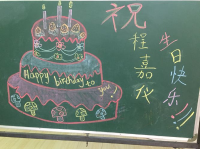 祝
程嘉
生日快乐!!!
Happy birthday to you!